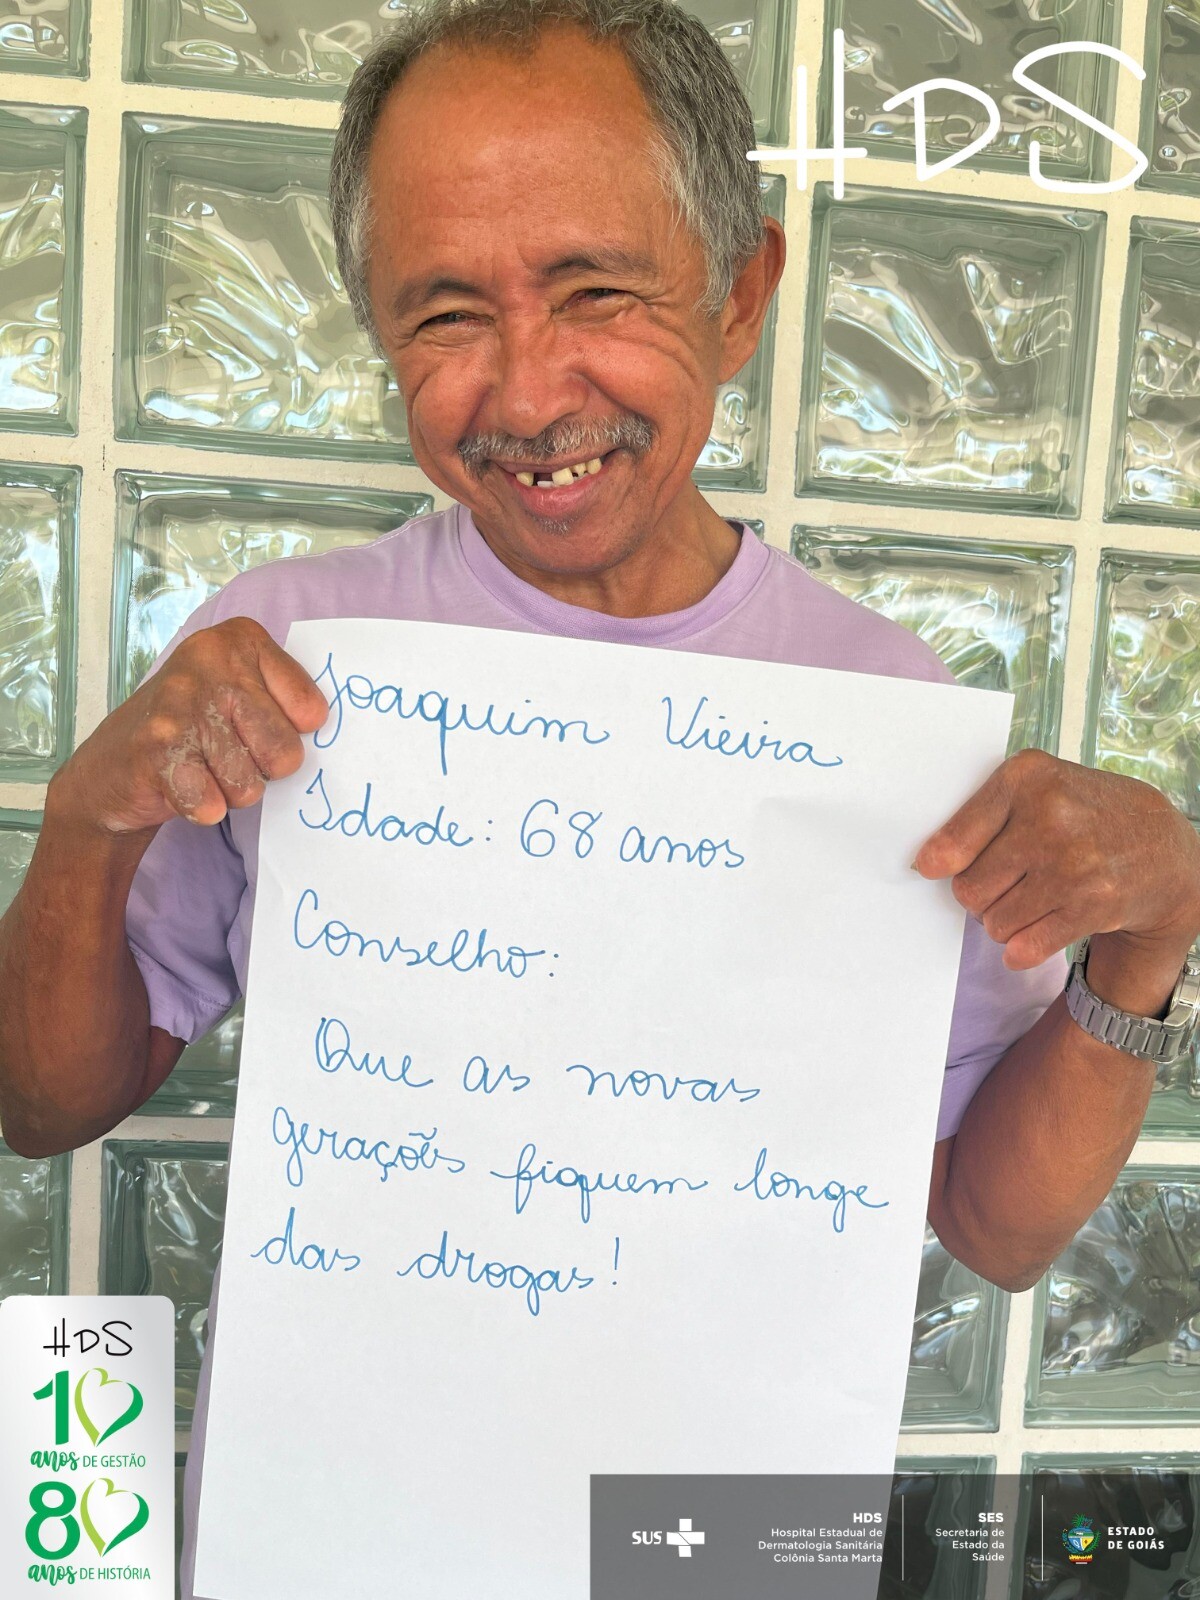 HDS
Joaquim Vieira
Idade: 68 anos
Conselho:
Que as novas
gerações fiquem longe
das drogas!
HDS
10
anos DE GESTÃO
80
anos DE HISTÓRIA
SUS
HDS
Hospital Estadual de
Dermatologia Sanitária
Colônia Santa Marta
SES
Secretaria de
Estado da
Saúde
ESTADO
DE GOIÁS